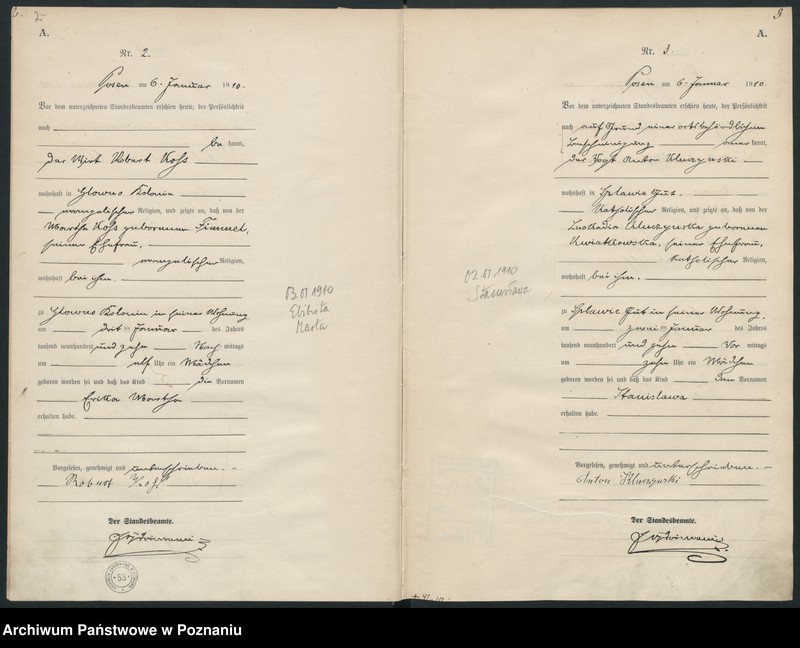 2
A.
Nr. 2.
Posen am 6. Januar 1910.
Vor dem unterzeichneten Standesbeamten erschien heute, der Persönlichkeit
nach
be kannt,
der Wirt Robert Kohs
wohnhaft in Glowno Kolonie
evangelischer Religion, und zeigte an, daß von der
Martha Kohs geborenen Timmel,
seiner Ehefrau,
evangelischer Religion,
wohnhaft bei ihm,
zu Glowno Kolonie in seiner Wohnung
am drei ten Januar des Jahres
tausend neunhundert und zehn Nach mittags
um elf Uhr ein Mädchen
geboren worden sei und daß das Kind die Vornamen
Erika Martha
erhalten habe.
Vorgelesen, genehmigt und unterschrieben.
Robert Kohs
Der Standesbeamte.
03.01.1910
Marta
3
A.
Nr. 3.
Posen am 6. Januar 1910.
Vor dem unterzeichneten Standesbeamten erschien heute, der Persönlichkeit
nach auf Grund einer ortsbehördlichen
Bescheinigung aner kannt,
der Vogt Anton Kluczynski
wohnhaft in Splawie Gut,
katholischer Religion, und zeigte an, daß von der
Leokadia Kluczynska geborenen
Kwiatkowska, seiner Ehefrau,
katholischer Religion,
wohnhaft bei ihm,
zu Splawie Gut in seiner Wohnung,
am zwei ten Januar des Jahres
tausend neunhundert und zehn Vor mittags
um zehn Uhr ein Mädchen
geboren worden sei und daß das Kind den Vornamen
Stanislawa
erhalten habe.
Vorgelesen, genehmigt und unterschrieben.
Anton Kluczynski
Der Standesbeamte.
02.01.1910
Stanisława
53
Archiwum Państwowe w Poznaniu